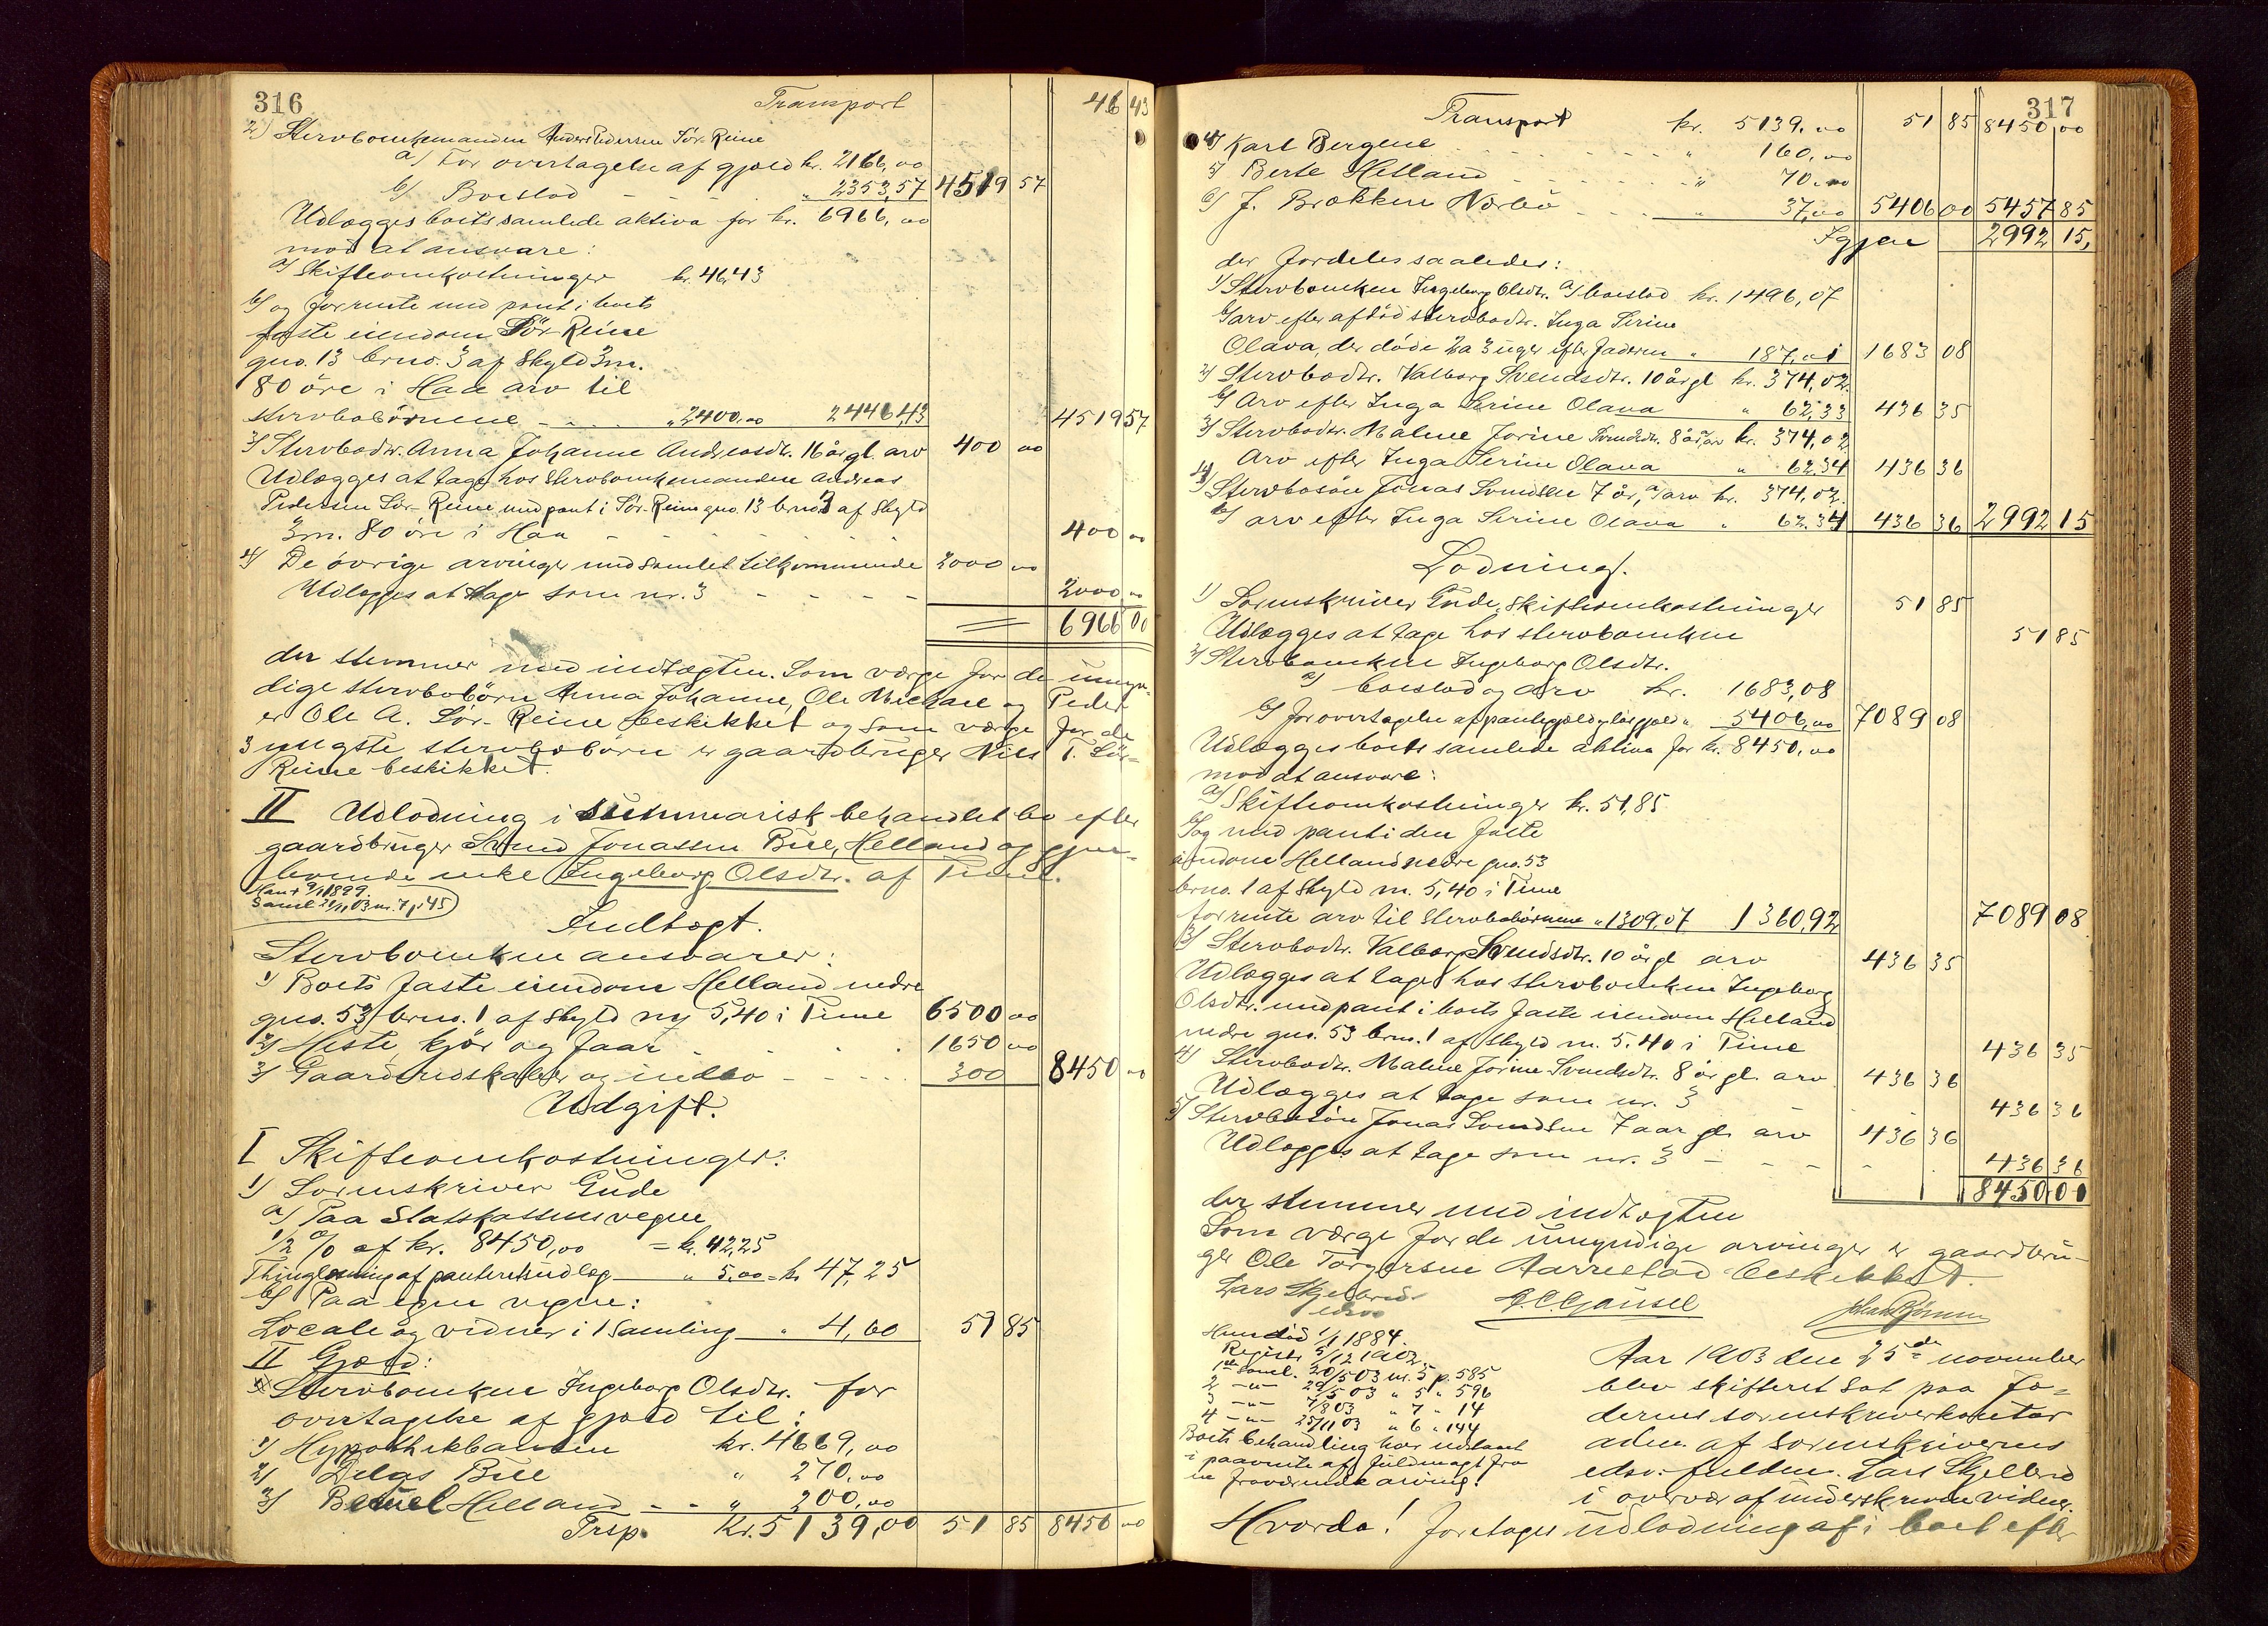 316 Transport 46 43
2) Stervboenkemanden Anders Pedersen Sör-Reine
a) For overtagelse af gjæld kr. 2166,00
b) Boeslod - - - " 2353,57 4519 57
Udlægges boets samlede aktiva for kr. 6966,00
mod at ansvare:
a) Skifteomkostninger kr. 46.43
b) og forrente med pant i boets
faste eiendom Sör-Reine
gno. 13 brno. 3 af Skyld 3m.
80 öre i Haa arv til
stervbobörnene - - - " 2400,00 2446,43 4519 57
3) Stervbodtr. Anna Johanne Andreasdtr. 16 år gl. arv 400 00
Udlægges at tage hos Stervboenkemanden Andreas
Pedersen Sör-Reine med pant i Sör-Reine gno. 13 brno 3 af Skyld
3m. 80 öre i Haa - - - - 400 00
4) De övrige arvinger med samlet tilkommende 2000 00
Udlægges at tage som nr. 3 - - - - 2000 00
6966 00
der stemmer med indtægten. Som værge for de umyn-
dige stervbobörn Anna Johanne, Ole Michael og Peder
er Ole A. Sör-Reine beskikket og som værge for de
3 yngste stervbobörn er gaardbruger Nils T. Sör-
Reine beskikket.
II Udlodning i summarisk behandlet bo efter
gaardbruger Svend Jonassen Bue, Helland og gjen-
levende enke Ingeborg Olsdtr. af Time.
Han + 9/1 1899.
Saml 21/1, 03 nr. 7 p. 45
Indtægt.
Stervboenken ansvarer:
1) Boets faste eiendom Helland nedre
gno. 53 brno. 1 af Skyld m 5,40 i Time 6500 00
2) Heste, kjör og faar - - - 1650 00
3) Gaardsredskaber og indbo - - - 300 8450 00
Udgift.
I Skifteomkostninger:
1) Sorenskriver Gude
a) Paa Statskassens vegne
1/2 % af kr. 8450,00 = kr. 42,25
Thinglæsning af panteretsudlæg " 5,00 = kr 47,25
b) Paa egne vegne:
Locale og vidner i 1 Samling " 4,60 51 85
II Gjæld:
Stervboenken Ingeborg Olsdtr. for
overtagelse af gjæld til:
1) Hypothekbanken kr. 4669,00
2) Delas Bue " 270,00
3) Beruel Helland - - " 200,00
Trsp. Kr. 5139,00 51 85 8450 00
317
Transport kr. 5139,00 51 85 8450 00
4) Karl Bergene - - - " 160,00
5) Berte Helland - - - " 70,00
6) J. Brækken Nærbö - - - " 37,00 5406 00 5457 85
Igjen 2992 15,
der fordeles saaledes:
1) Stervboenken Ingeborg Olsdtr. a) boeslod kr. 1496,07
b) arv efter afdöd stervbodtr. Inga Serine
Olava, der döde 2 a 3 uger efter faderen " 187,01 1683 08
2) Stervbodtr. Valborg Svendsdtr. 10 år gl kr. 374,02
b) Arv efter Inga Serine Olava " 62,33 436 35
3) Stervbodtr. Malene Jorine Svendsdtr. 8 år a) arv kr. 374,02
Arv efter Inga Serine Olava " 62.34 436 36
4) Stervbosön Jonas Svendsen 7 år, a) arv kr. 374,02
b) arv efter Inga Serine Olava " 62.34 436 36 2992 15
Lodning.
1) Sorenskriver Gude, Skifteomkostninger 51 85
Udlægges at tage hos stervboenken 51 85
2) Stervboenken Ingeborg Olsdtr.
a) boeslod og arv kr. 1683,08
b) for overtagelse af pantegjæld og lös gjæld " 5406,00 7089 08
Udlægges boets samlede aktiva for kr. 8450,00
mod at ansvare:
a) Skifteomkostninger kr. 51,85
b) og med pant i den faste
eiendom Helland nedre gno. 53
brno. 1 af Skyld m. 5,40 i Time
forrente arv til stervbobörnene " 1309,07 1360,92 7089 08
3) Stervbodtr. Valborg Svendsdtr. 10 år gl arv 436 35
Udlægges at tage hos stervboenken Ingeborg
Olsdtr. med pant i boets faste eiendom Helland
nedre gno. 53 brno. 1 af Skyld m. 5.40 i Time 436 35
4) Stervbodtr. Malene Jorine Svendsdtr. 8 år gl. arv 436 36
Udlægges at tage som nr. 3 - - - 436 36
5) Stervbosön Jonas Svendsen 7 aar gl. arv 436 36
Udlægges at tage som nr. 3 - - - - 436 36
8450 00
der stemmer med indtægten
Som værge for de umyndige arvinger er gaardbru-
ger Ole Torgersen Aarrestad beskikket.
Lars Skjelbred
edsv
Hun död 1/1 1884.
Registr. 2/12 1902.
1ste Saml. 20/5 03 nr. 5 p. 585
2 -"- 29/5 03 " 5 " 596
3 -"- 4/8 03 " 7 " 14
4 -"- 25/11 03 " 6 " 144
Boets behandling har udstaaet
i paavente af fuldmagt fra
en fraværende arving.
Aar 1903 den 25de november
blev skifteret sat paa Jæ-
derens sorenskriverkontor
adm. af sorenskriverens
edsv. fuldm. Lars Skjelbred
i overvær af underskrevne vidner.
Hvorda! foretages udlodning af i boet efter